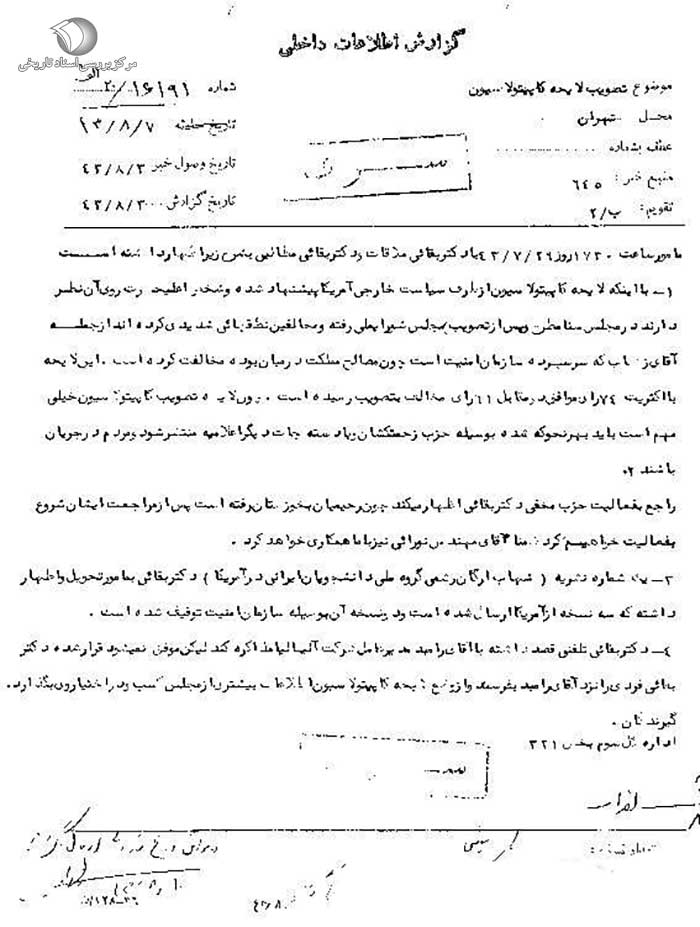 مرکز بررسی اسناد تاریخی
گزارش اطلاعات داخلی
موضوع تصویب لایحه کاپیتولاسیون
شماره ۱۶۱۹۱/۲۰ الف
محل تهران
تاریخ حادثه ۱۳/۸/۷
عطف بشماره
تاریخ وصول خبر ۴۳/۸/۳
منبع خبر: ۶۴۵
تقویم: ب/۲
تاریخ گزارش ۴۳/۸/۳۰۰
سری
مامور ساعت ۱۷۳۰ روز ۴۳/۷/۲۶ با دکتر بقائی ملاقات و دکتر بقائی مطالبی بشرح زیر اظهار داشته است
۱ـ با اینکه لایحه کاپیتولاسیون از طرف سیاست خارجی آمریکا پیشنهاد شده و شخص اعلیحضرت روی آن نظر
دارند در مجلس سنا مطرح و پس از تصویب بمجلس شورایملی رفته و مخالفین نطقهائی شدیدی کرده اند از جمله
آقای که سرسپرده سازمان امنیت است چون مصالح مملکت در میان بوده مخالفت کرده است . این لایحه
با اکثریت ۷۴ رای موافق در مقابل ۶۱ رای مخالف بتصویب رسیده است . چون لایحه تصویب کاپیتولاسیون خیلی
مهم است باید بهر نحو که شده بوسیله حزب زحمتکشان و یا دستجات دیگر اعلامیه منتشر شود و مردم در جریان
باشند ۲.
راجع بفعالیت حزب مخفی دکتر بقائی اظهار میکند چون رحیمیان بخوزستان رفته است پس از مراجعت ایشان شروع
بفعالیت خواهیم کرد ضمنا آقای مهندس نورائی نیز با ما همکاری خواهد کرد .
۳ـ یک شماره نشریه ( شهاب ارگان رسمی گروه ملی دانشجویان ایرانی در آمریکا ) دکتر بقائی بمامور تحویل و اظهار
داشته که سه نسخه از آمریکا ارسال شده است و دو نسخه آن بوسیله سازمان امنیت توقیف شده است .
۴ـ دکتر بقائی تلفنی قصد داشته با آقای رامبد مدیر عامل شرکت آلمالیا مذاکره کند لیکن موفق نمیشود قرار شده دکتر
بقائی فردی را نزد آقای رامبد بفرستد و از وضع لایحه کاپیتولاسیون اطلاعات بیشتری از مجلس کسب و در اختیار وی بگذارد .
گیرندگان .
اداره کل سوم بخش ۳۲۱